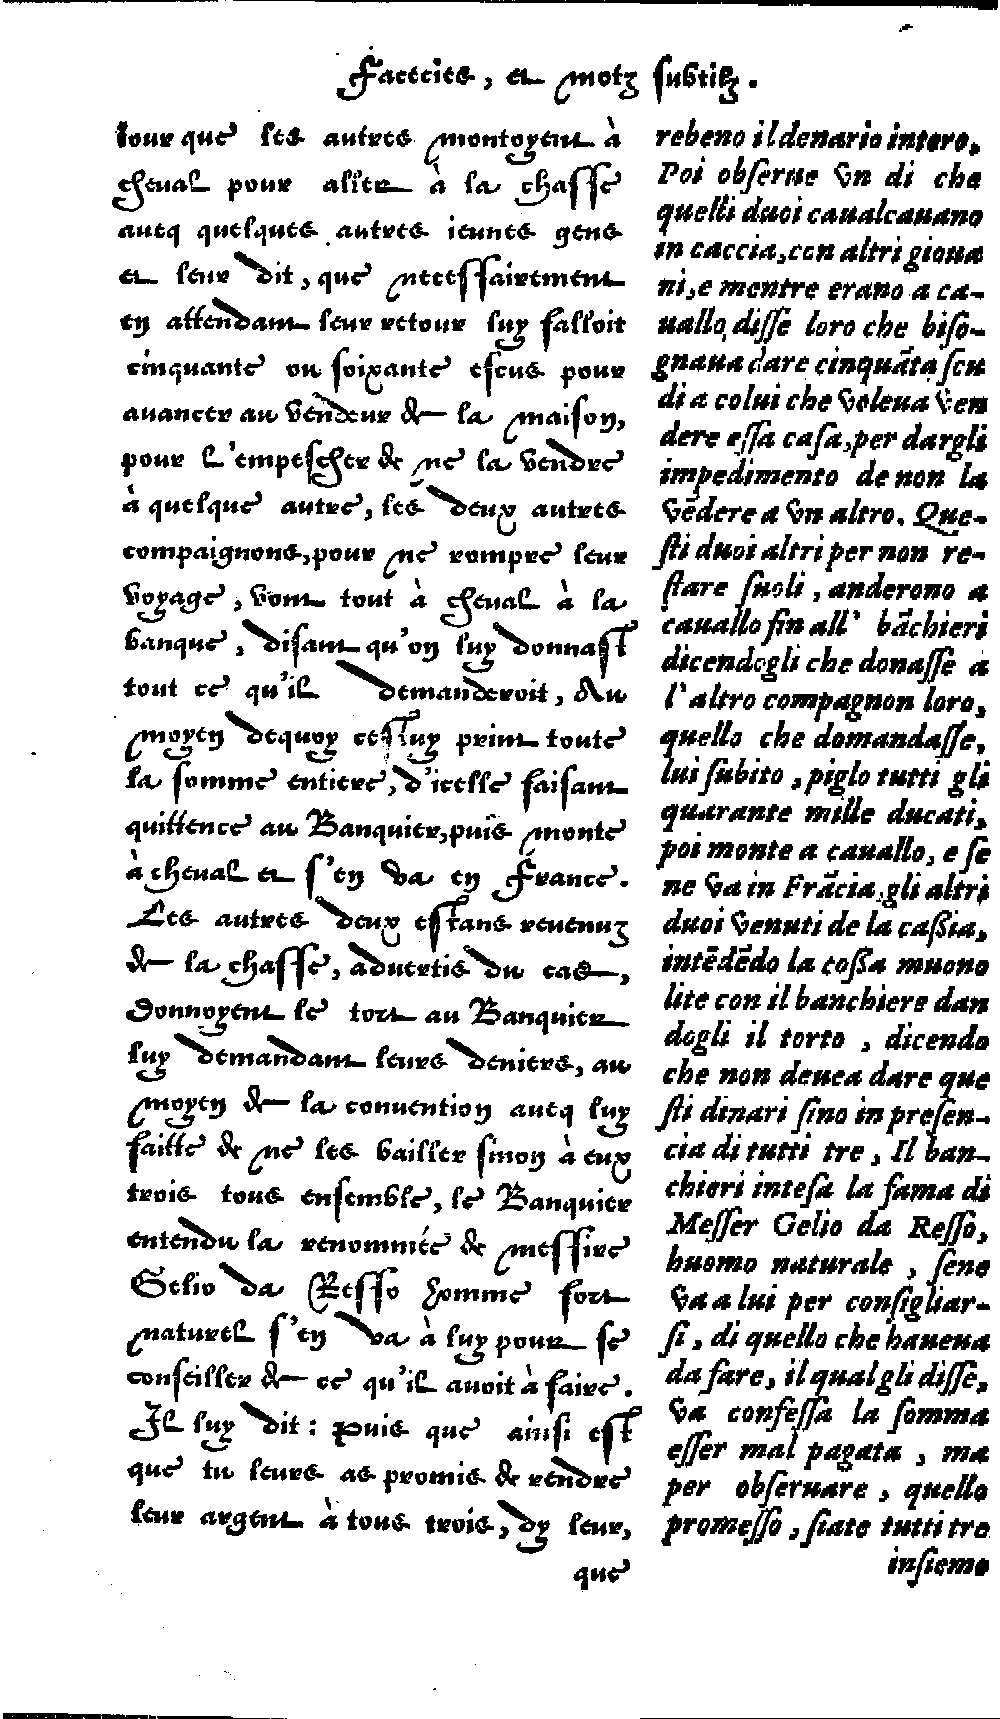 Facecies, et motz subtilz.
iour que les autres montoyent à
cheval pour aller à la chasse
aueq quelques autres ieunes gens
et leur dit, que necessairement
en attendant leur retour luy falloit
cinquante ou soixante escus pour
auancer au vendeur de la maison,
pour l'empescher de ne la vendre
à quelque autre, les deux autres
compaignons, pour ne rompre leur
voyage, vont tout à cheval à la
banque, disant qu'on luy donnast
tout ce qu'il demanderoit, Au
moyen dequoy cestuy print toute
la somme entiere, d'icelle faisant
quittence au Banquier, puis monte
à cheval et s'en va en France.
Les autres deux estans reuenuz
de la chasse, aduertis du cas,
donnoyent le tort au Banquier
luy demandant leurs deniers, au
moyen de la conuention aueq luy
faitte de ne les bailler sinon à eux
trois tous ensemble, le Banquier
entendu la renommée de messire
Gelio da Resso homme fort
naturel s'en va à luy pour se
conseiller de ce qu'il auoit à faire.
Il luy dit: puis que ainsi est
que tu leurs as promis de rendre
leur argent à tous trois, dy leur,
que
rebeno il denario intero,
Poi obserue vn di che
quelli duoi caualcauano
in caccia, con altri gioua
ni, e mentre erano a ca-
uallo, disse loro che biso-
gnaua dare cinquãta scu
di a colui che voleua ven
dere essa casa, per dargli
impedimento de non la
vẽdere a vn altro. Que-
sti duoi altri per non re-
stare suoli, anderono a
cauallo fin all' bãchieri
dicendogli che donasse a
l'altro compagnon loro,
quello che domandasse,
lui subito, piglo tutti gli
quarante mille ducati,
poi monte a cauallo, e se
ne va in Frãcia, gli altri
duoi venuti de la caßia,
intẽdẽdo la coßa muono
lite con il banchiere dan
dogli il torto, dicendo
che non deuea dare que
sti dinari sino in presen-
cia di tutti tre, Il ban-
chieri intesa la fama di
Messer Gelio da Resso,
huomo naturale, sene
va a lui per consigliar-
si, di quello che haueua
da fare, il qual gli disse,
va confessa la somma
esser mal pagata, ma
per obseruare, quello
promesso, siate tutti tre
insieme